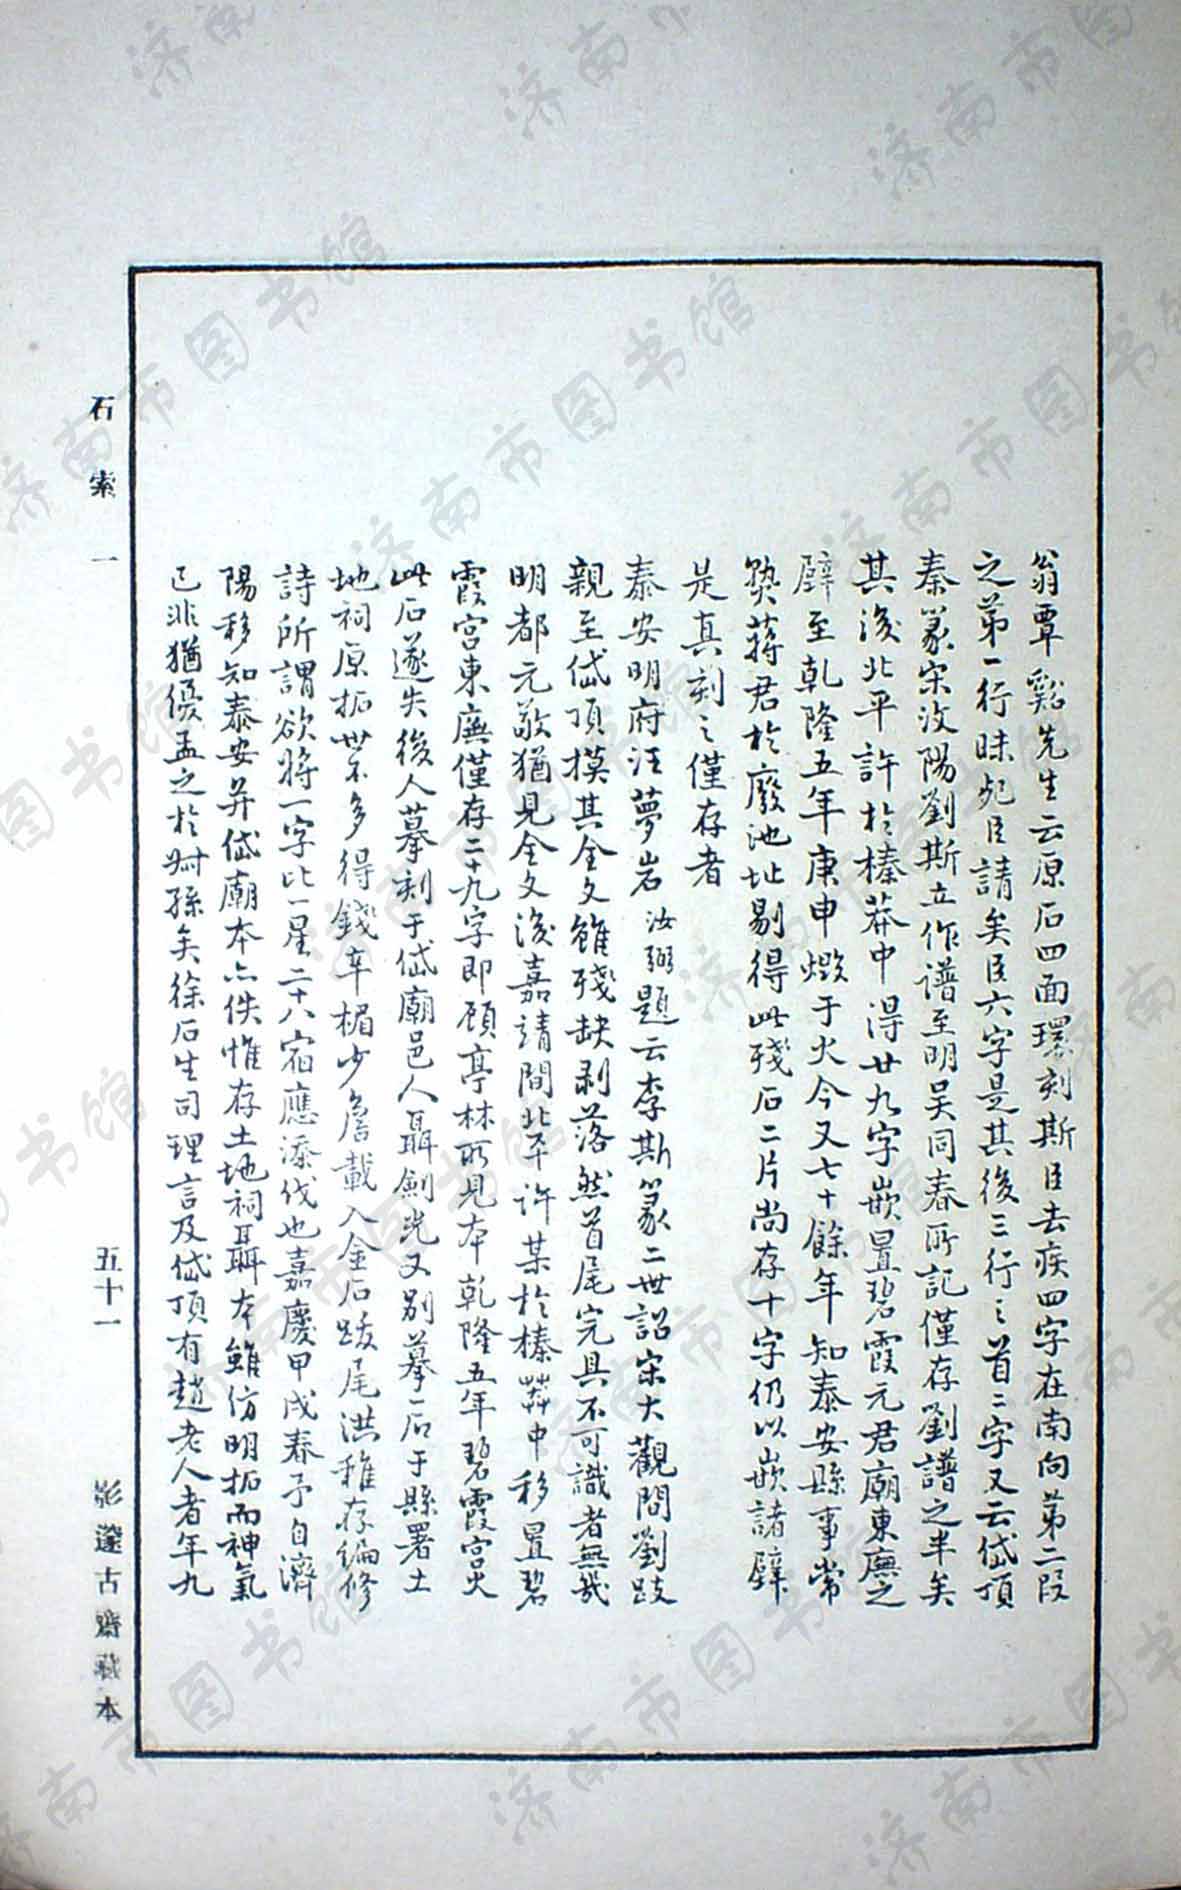 翁覃谿先生云原石四面環刻斯臣去疾四字在南向第二段
之第一行昧死臣請矣臣六字是其後三行之首二字又云岱頂
秦篆宋汶陽劉斯立作譜至明吴同春所記僅存劉譜之半矣
其後北平許於榛莽中得廿九字嵌置碧霞元君廟東廡之
壁至乾隆五年庚申燬于火今又七十餘年知泰安縣事常
蔣君於廢池址剔得此殘石二片尚存十字仍以嵌諸壁
是真刻之僅存者
泰安明府汪夢岩汝弼題云李斯篆二世詔宋大觀間劉跂
親至岱頂摸其全文雖殘缺剥落然首尾完具不可識者無幾
明都元敬猶見全文後嘉靖間北平許某於榛莽中移置碧
霞宮東廡僅存二十九字即顧亭林所見本乾隆五年碧霞宮火
此石遂失後人摹刻于岱廟邑人聶劍光又别摹一石于縣署土
地祠原拓世不多得錢辛楣少詹載入金石跋尾洪稚存編修
詩所謂欲將一字比一星二十八宿應添伐也嘉慶甲戌春予自濟
陽移知泰安并岱廟本亦佚惟存土地祠聶本雖仿明拓而神氣
已非猶優孟之於叔孫矣徐石生司理言及岱頂有趙老人者年九
石索 一
五十一
影邃古齋藏本
济南市图书馆